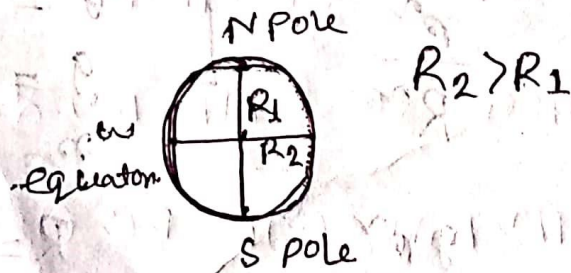 N Pole
R1
R2 > R1
R2
equator
S Pole